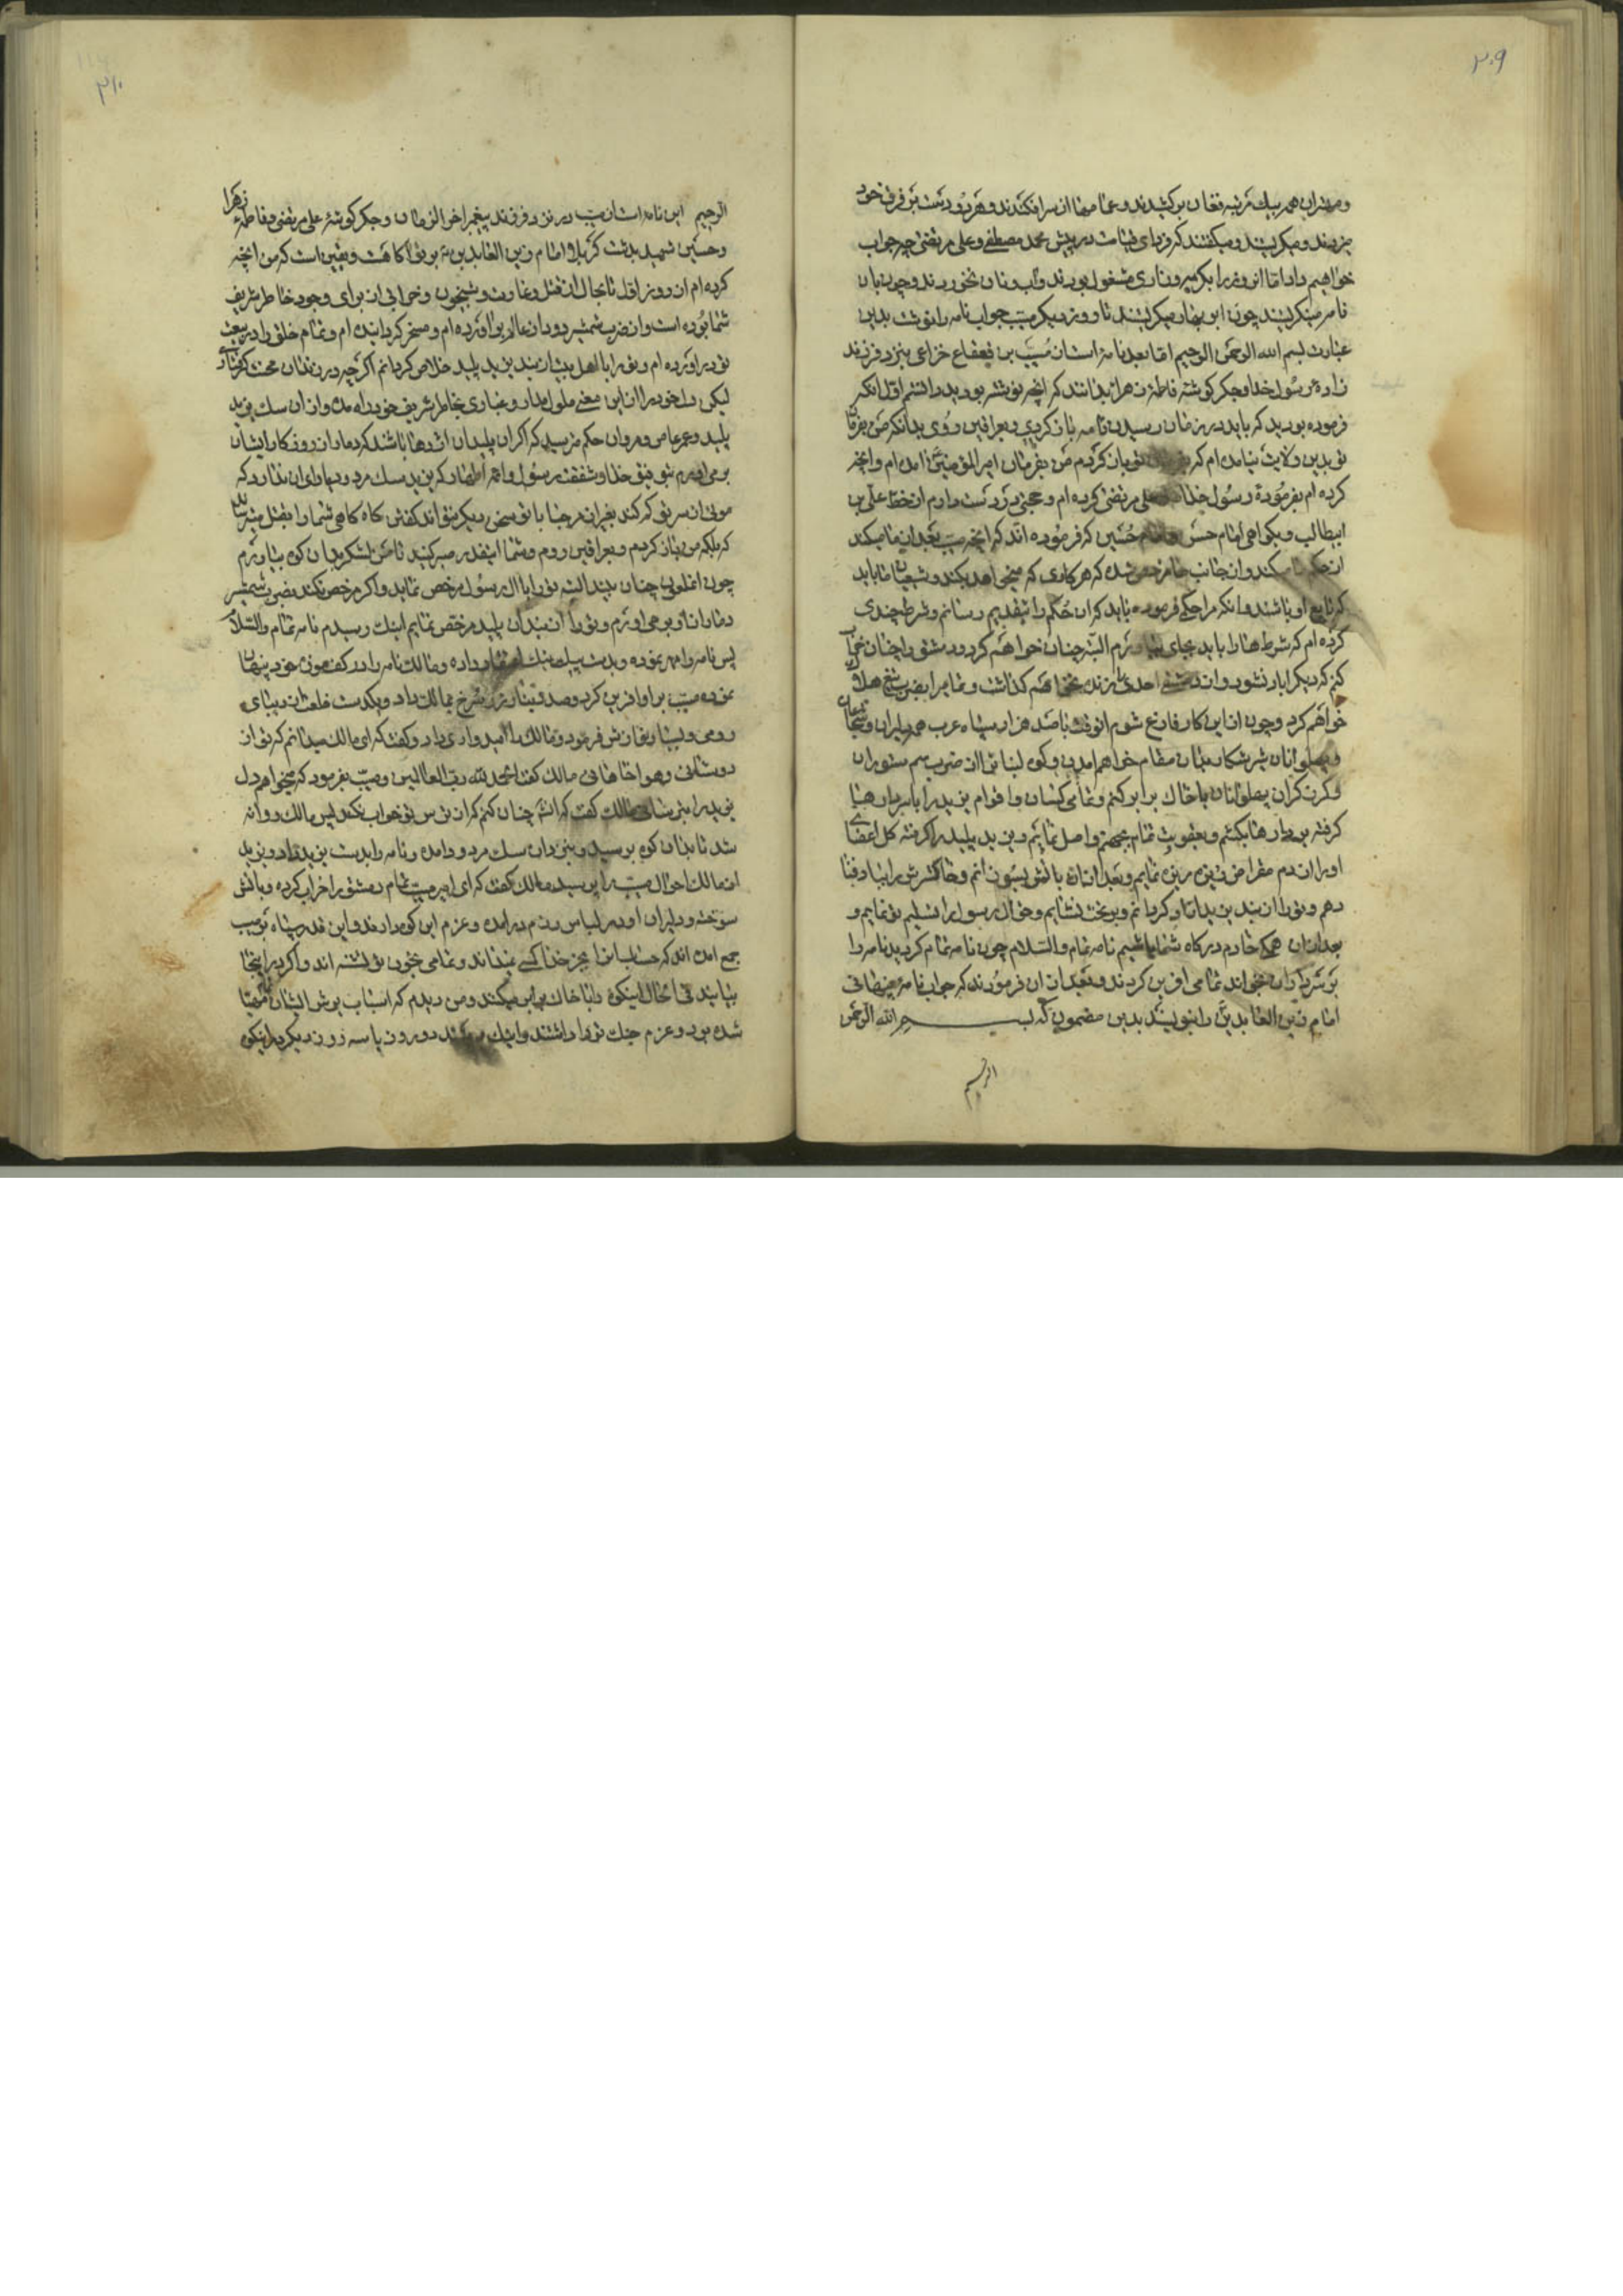 ۲۰۹
و مهتران همه بیک مرتبه فغان برکشیدند و عمامها از سر افکندند و هر دو دست بر فرق خود
میزدند و میکریستند و میکفتند که فردای قیامت در پیش محمد مصطفی و علی مرتضی چه جواب
خواهیم داد اما انروز را بکریه و زاری مشغول بودند و آب و نان نخوردند و چون بان
نامه مینکریستند چون ابر بهار میکریستند تا روز دیکر مسیب جواب نامه را نوشت بدین
عبارت بسم الله الرحمن الرحیم اما بعد نامه ایست از مسیب بن قعقاع خزاعی بنزد فرزند
زاده رسول خدا و جکر کوشه فاطمه زهرا بدانند که انچه نوشته بودید دانستم اول انکه
فرموده بودید که باید در زمان رسیدن نامه باز کردی و بعراقین روی بدانکه من بفرمان
تو بدین ولایت نیامده ام که تو باز کردم من بفرمان امیر المؤمنین آمده ام و انچه
کرده ام بفرموده رسول خدا و علی مرتضی کرده ام و حجتی در دست دارم از خط علی بن
ابیطالب و بکواهی امام حسن و امام حسین که فرموده اند که انچه مسیب بعد از ما میکند
از حکم ما میکند و از جانب ما مرخص شده که هر کاری که میخواهد بکند و شیعیان ما باید
که تابع او باشند و انکه مرا حکم فرموده باید که ان حکم را بتقدیم رسانم و شرط چندی
کرده ام که شرط ها را باید بجای بیاورم البته چنان خواهم کرد و دمشق را چنان خراب
کنم که دیکر اباد نشود و از دمشق احدی را زنده نخواهم کذاشت و تمام را بضرب تیغ هلاک
خواهم کرد و چون از این کار فارغ شوم انوقت با صد هزار سپاه عرب همه دلیران و شجاعان
و پهلوانان شیر شکار بدان مقام خواهم امدن و کوه لبنان را از ضرب سم ستوران
و کرز کران پهلوانان با خاک برابر کنم و تمامی کسان و اقوام یزید را با سردارها
کرفته بر دارها بکشم و بعقوبت تمام بجهنم واصل نمایم و یزید پلید را کرفته کل اعضای
او را از دم مقراض ریزه ریزه نمایم و بعد از ان باتش بسوزانم و خاکسترش را بباد فنا
دهم و تو را از بند یزید ازاد کردانم و بر تخت نشانم و حق ال رسول را تسلیم تو نمایم و
بعد از ان همکی خادم درکاه شما باشیم نامه تمام والسلام چون نامه تمام کردید نامه را
بر سرکردکان خواند تمامی افرین کردند و بعد از ان فرمودند که جواب نامه
امام زین العابدین را بنویسند بدین مضمون که بسم الله الرحمن
الرحیم
۲۱۰
الرحیم این نامه ایست از مسیب در نزد فرزند پیغمبر اخر الزمان و جکر کوشه علی مرتضی و فاطمه زهرا
و حسین شهید بدشت کربلا امام زین العابدین نه بر تو آکاهست و یقین است که من انچه
کرده ام از روز اول تا بحال از قتل و غارت و شبیخون و خرابی از برای وجود خاطر شریف
شما بوده است و از ضرب شمشیر دود از عالم بر اورده ام و مسخر کردانیده ام و تمام خلق را در بیعت
تو در اورده ام و تو را با اهل بیت از بند یزید پلید خلاص کردانم اکر چه در زندان محنت کرفتاری
لیکن دل خود را از این معنی ملول مدار و غباری بخاطر شریف خود راه مده و از ان سک یزید
پلید و عمر عاص و مروان حکم مترسید که اکر ان پلیدان اژدها باشند که دمار از روزکار ایشان
بر می اورم بتوفیق خدا و شفقت رسول و ائمه اطهار که یزید سک مردود یارای ان ندارد که
موئی از سر تو کم کند بغیر از هر جفا با تو سخن دیکر نتواند کفتن کاه کاهی شما را بقتل میترساند
که بلکه من باز کردم و بعراقین روم و شما اینقدر صبر کنید تا من لشکر بدان کوه بیاورم
چون انملعون چنان بیند البته تو را با ال رسول مرخص نماید و اکر مرخص نکند بضرب شمشیر
دمار از او بر می اورم و تو را از بند ان پلید مرخص نمایم اینک رسیدم نامه تمام والسلام
پس نامه را مهر نموده و بدست پیک داده و مالک نامه را در کف موزه خود پنهان
نموده مسیب بر او افرین کرد و صد دینار زر سرخ بمالک داد و یکدست خلعت دیبای
رومی و بسیار نوازش فرمود و مالک را امیدواری داد و کفت که ای مالک میدانم که تو از
دوستان و هواخاهانی مالک کفت الحمد لله رب العالمین و مسیب بفرمود که میخواهم دل
یزید را بترسانی مالک کفت که انشاءالله چنان کنم که از ترس تو خواب نکند پس مالک روانه
شد تا بدان کوه برسید و بنزد ان سک مردود امده و نامه را بدست یزید داد و یزید
از مالک احوال مسیب را پرسید مالک کفت که ای امیر مسیب تمام دمشق را خراب کرده و باتش
سوخت و دلیران او در لباس رزم در امده و عزم این کوه دارند و این قدر سپاه بر مسیب
جمع امده اند که حساب انرا بجز خدا کسی نمیداند و تمامی خون تو تشنه اند و اکر در اینجا
بیایند فی الحال اینکوه را با خاک برابر میکنند و من دیدم که اسباب یورش ایشان مهیا
شده بود و عزم جنک تو را داشتند و اینک میرسند دو روز یا سه روز دیکر در اینکوه